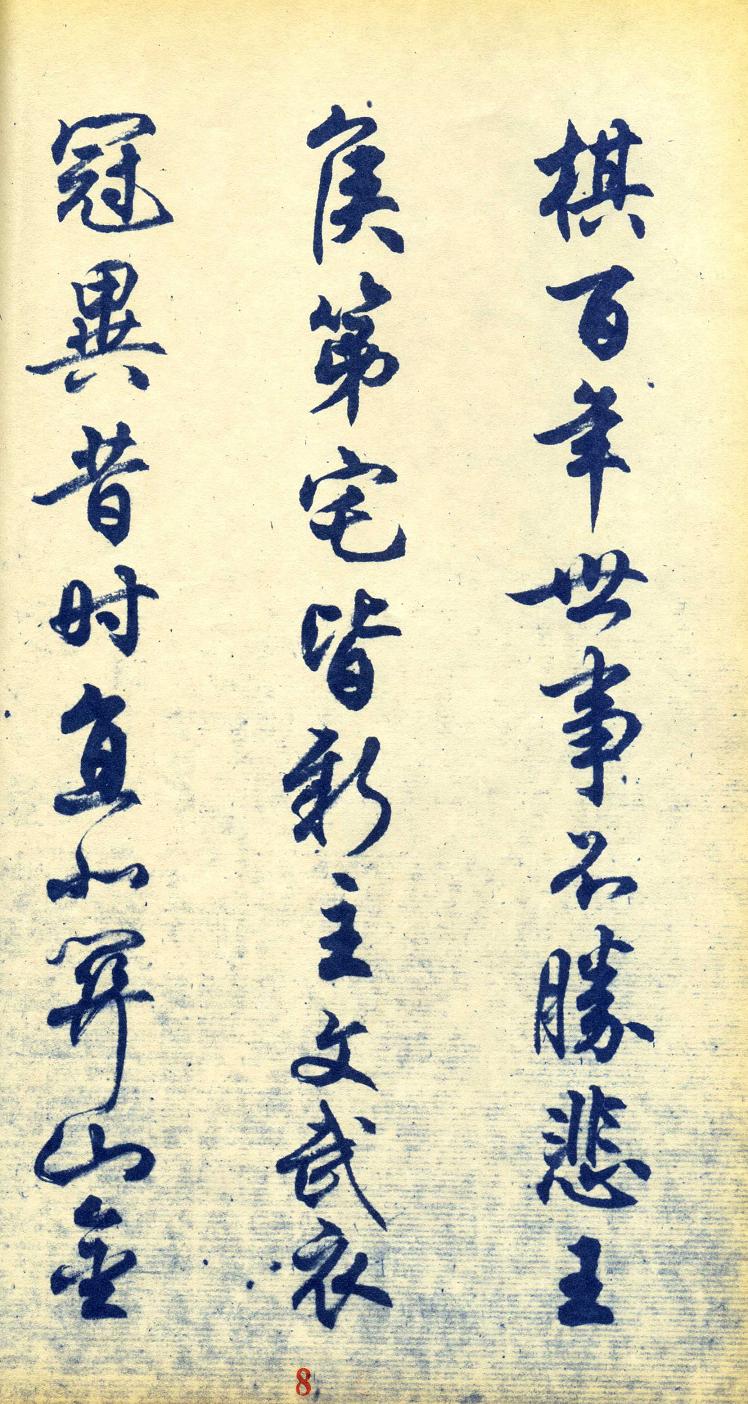 棋百年世事不勝悲王
侯第宅皆新主文武衣
冠異昔时直北關山金
8